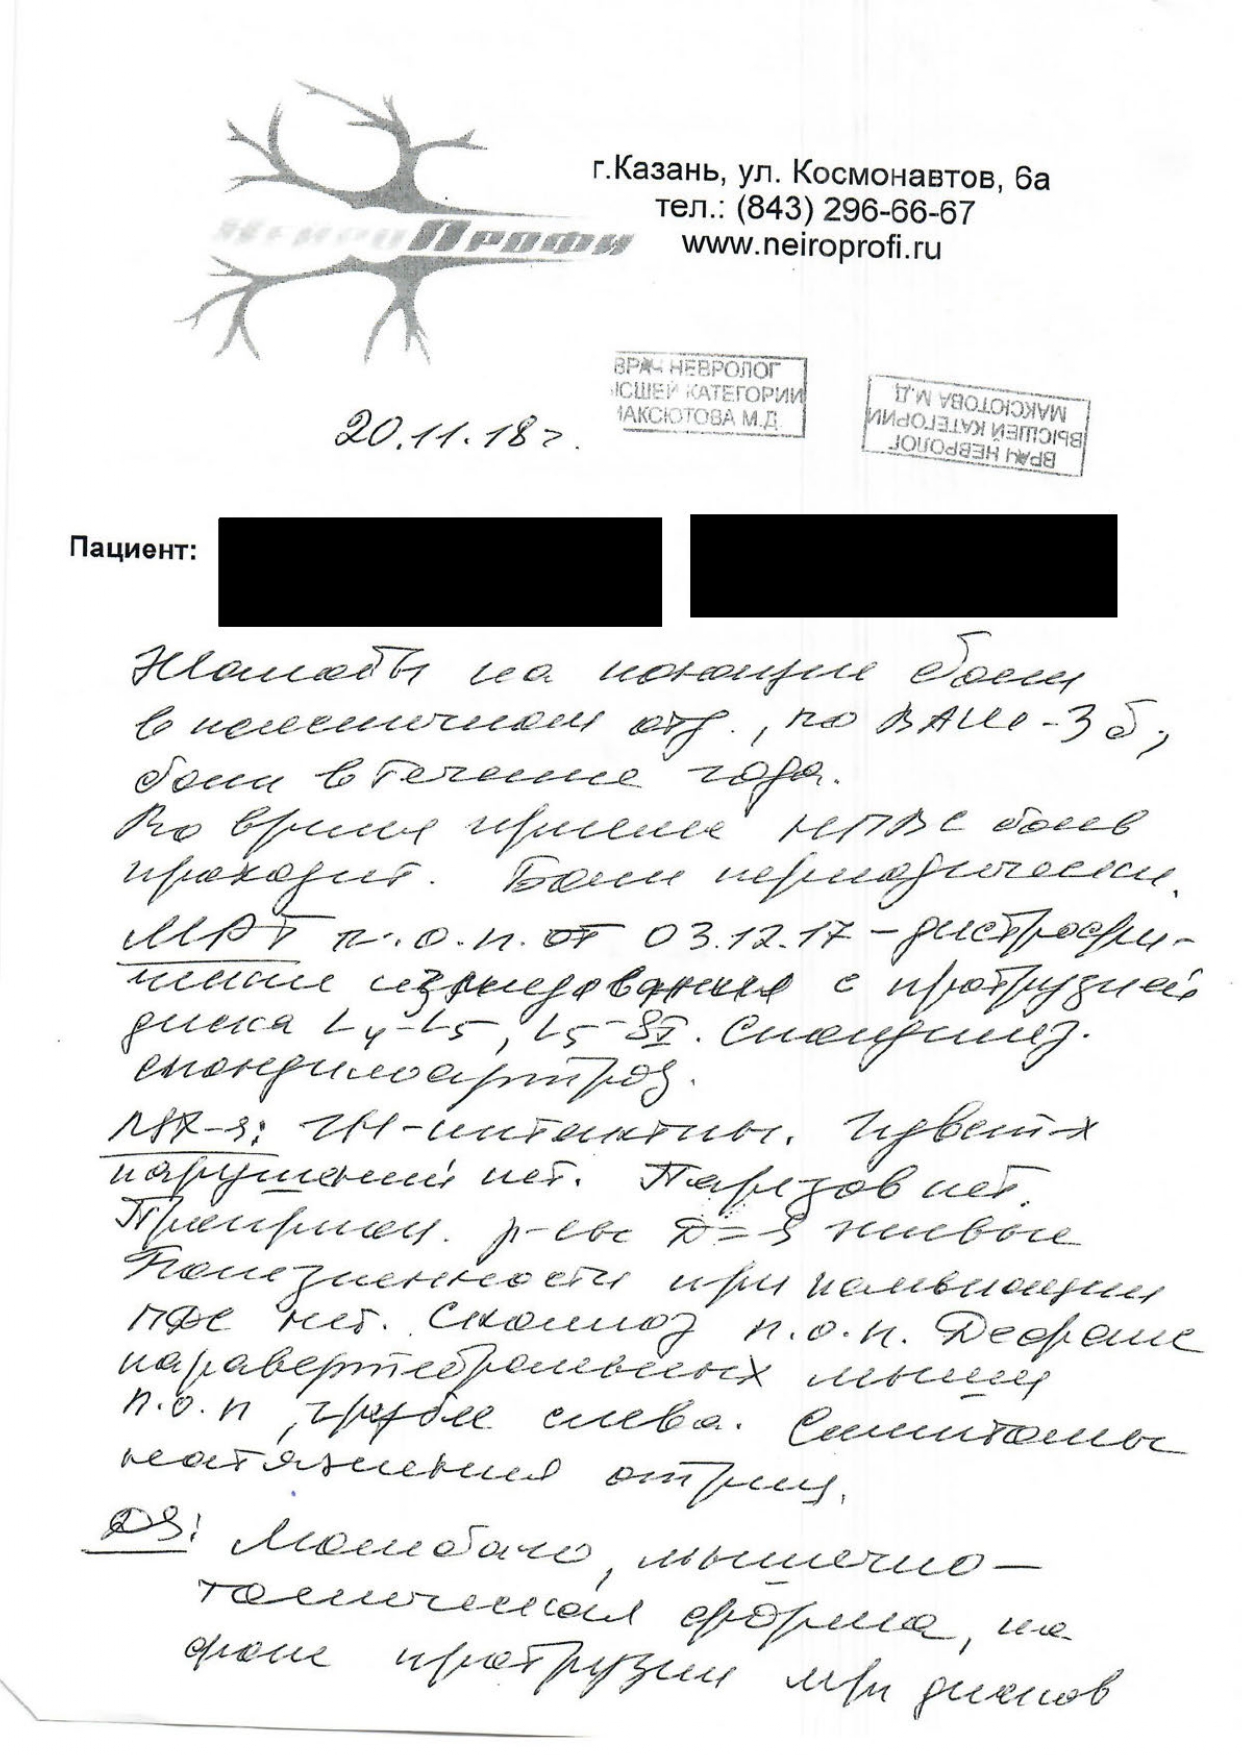 г.Казань, ул. Космонавтов, 6а
тел.: (843) 296-66-67
www.neiroprofi.ru
НейроПрофи
ВРАЧ НЕВРОЛОГ
ВЫСШЕЙ КАТЕГОРИИ
МАКСЮТОВА М.Д.
ВРАЧ НЕВРОЛОГ
ВЫСШЕЙ КАТЕГОРИИ
МАКСЮТОВА М.Д.
20.11.18г.
Пациент:
Жалобы на ноющие боли
в поясничном отд., по ВАШ-3 б,
боли в течение года.
Во время приема НПВС боль
проходит. Боли периодически.
МРТ п.о.п. от 03.12.17 – дистрофи-
ческие с протрузией
диска L4-L5, L5-S1. Спондилез.
спондилоартроз.
ЧН-интактны. Чувст-х
нарушений нет. Парезов нет.
р-сы D=S живые
Болезненности при пальпации
ПДС нет. Сколиоз п.о.п. Дефанс
паравертебральных мышц
п.о.п, грубее слева. Симптомы
натяжения отриц.
DS: Люмбаго, мышечно-
тоническая форма, на
фоне протрузии м/п дисков